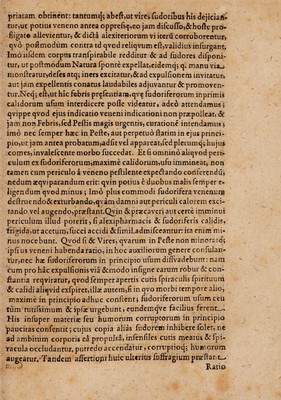 priatam obtinent: tantumq; abest, ut vires sudoribus his dejician-
tur, ut potius veneno antea oppresse, eo jam discusso, & hoste pro-
fligate allevientur, & dicta alexiteriorum vi iterum corroborentur,
quo postmodum contra id quod reliquum est, validius insurgant.
Imo iisdem corpus transpirabile redditur & ad sudores disponi-
tur, ut postmodum Natura sponte expellat, eidemq; q. manu via
monstratur, deses atq; iners excitatur, & ad expulsionem invitatur,
aut jam expellentis conatus laudabiles adjuvantur & promoven-
tur. Neq; est, ut hic febris præsentiam, quæ sudoriferorum in primis
calidorum usum interdicere posse videatur, adeò attendamus:
quippe quod ejus indicatio veneni indicationi non præpolleat, &
jam non Febris, sed Pestis magis urgentis, curatione intendamus;
imo nec semper hæc in Peste, aut perpetuò statim in ejus princi-
pio, ut jam antea probatum, adsit vel appareat, sed plerumq; hujus
comes, invalescente morbo succedat. Et si omnino aliquod peri-
culum ex sudoriferorum, maxime calidorum, usu immineat, non
tamen cum periculo à veneno pestilente expectando conferendū;
nedum æquiparandum erit: quin potius è duobus malis semper e-
ligendum quod minus; Imo plus commodi sudorifera venenum
destruendo & exturbando, quàm damni aut periculi calorem exci-
tando vel augendo, præstant. Quin & præcaveri aut certè imminui
periculum illud poterit, si alexipharmacis & sudoriferis calida,
frigida, ut acetum, succi acidi & simil. admisceantur: ita enim mi-
nus nocebunt. Quod si & Vires, quarum in Peste non minor, ac
ipsius veneni habenda ratio, in hoc auxiliorum genere consulan-
tur, nec hæ sudoriferorum in principio usum dissvadebunt: nam
cum pro hâc expulsionis viâ & modo insigne earum robur & con-
stantia requiratur, quod semper apertis cutis spiraculis spirituum
& calidi aliquid exspiret, illæ autem, si in quo morbi tempore alio,
maximè in principio adhuc constent; sudoriferorum usum ceu
tum tutissimum & ipsæ urgebunt, eundemque facilius ferent.
His insuper materiæ seu humorum corruptorum in principio
paucitas consentit; cujus copia aliàs sudorem inhibere solet, ne
ad ambitum corporis eâ propulsâ, insensiles cutis meatus & spi-
racula occludantur, putredo accendatur, corruptioq; humorum
augeatur. Tandem assertioni huic ulterius suffragium præstant
Ratio